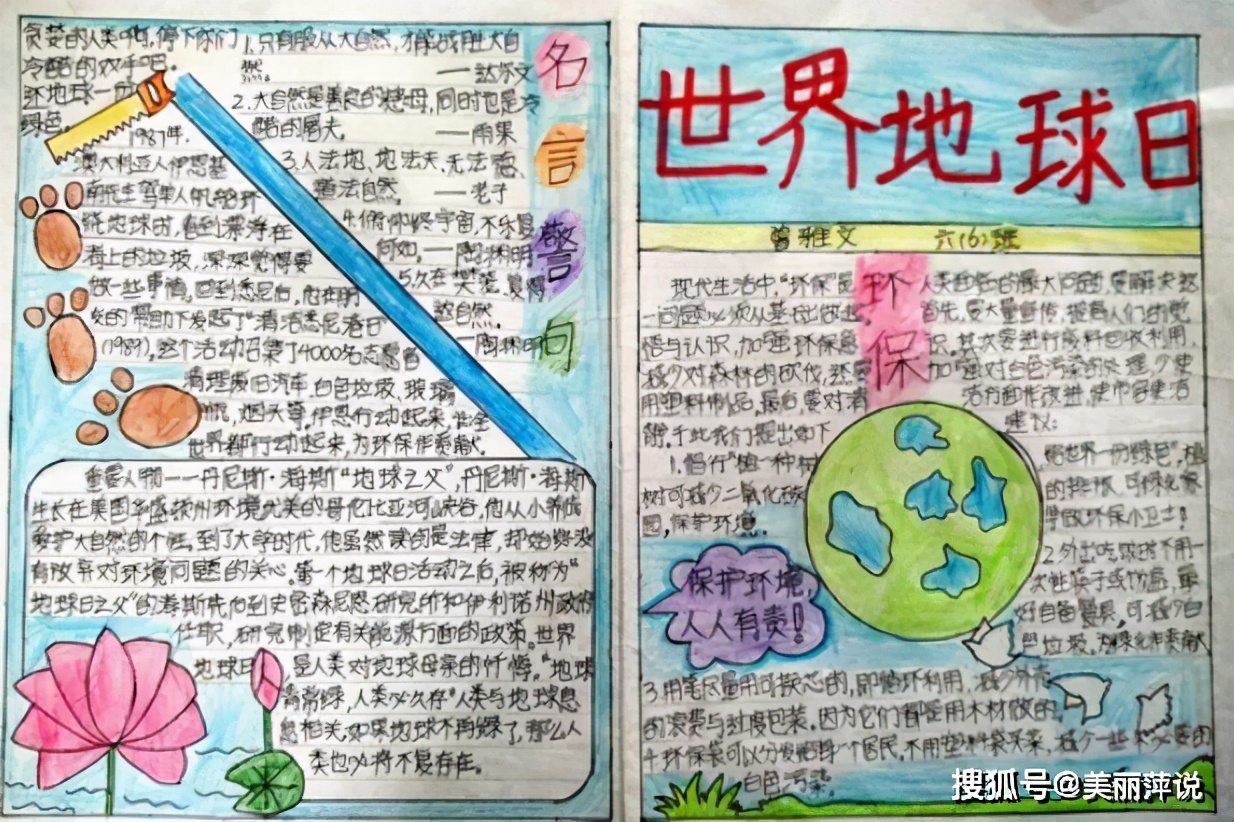 贪婪的人类啊,停下你们
冷酷的双手吧.
还地球一份
绿色.
1.只有服从大自然,才能战胜大自
然
——达尔文
2.大自然是善良的慈母,同时也是冷
酷的屠夫.
——雨果
3.人法地、地法天、
道法自然.
——老子
4.俯仰终宇宙,不乐复
何如.——陶渊明
5.久在樊笼里,复得
返自然.
——陶渊明
名
言
警
句
1987年.
澳大利亚人伊恩基
南先生驾单人帆船环
绕地球时,看到漂浮在
海上的垃圾,深深觉得要
做一些事情,回到悉尼后,他在朋
友的帮助下发起了"清洁悉尼港日"
(1989),这个活动召集了4000名志愿者
清理废旧汽车.白色垃圾、玻璃
瓶,烟头等,伊恩行动起来,让全
世界都行动起来,为环保作贡献.
重要人物——丹尼斯·海斯"地球之父",丹尼斯·海斯
生长在美国华盛顿州环境优美的哥伦比亚河峡谷,他从小养成
爱护大自然的个性.到了大学时代,他虽然读的是法律,却始终没
有放弃对环境问题的关心.第一个地球日活动之后,被称为"
地球日之父"的海斯先后到史密森尼恩研究所和伊利诺州政府
任职,研究制定有关能源方面的政策.世界
地球日 是人类对地球母亲的忏悔."地球
清常绿,人类必久存"人类与地球息
息相关,如果地球不再绿了,那么人
类也必将不复存在.
世界地球日
曾雅文 六(6)班
环
保
现代生活中,"环保"是 人类面临的最大问题,要解决这
一问题必须从基础做起, 首先,要大量宣传,提高人们的觉
悟与认识,加强环保意 识,其次要进行废料回收利用,
减少对森林的砍伐,还要 加强对白色污染的处理,少使
用塑料制品,最后,要对消
防.于此我们提出如下 建议:
1.倡行"植一种树 给世界一份绿色",植
树可减少二氧化碳 的排放,可绿化家
园,保护环境. 争做环保小卫士!
2.外出吃饭时不用一
次性筷子或饭盒,最
好自备餐具,可减少白
色垃圾,为绿化作贡献
保护环境,
人人有责!
3.用笔尽量用可换芯的,即循环利用,减少外壳
的浪费与过度包装.因为它们都是用木材做的.
4.环保袋可以分发给每一个居民,不用塑料袋买菜,减少一些不必要的
白色污染.
搜狐号@美丽萍说